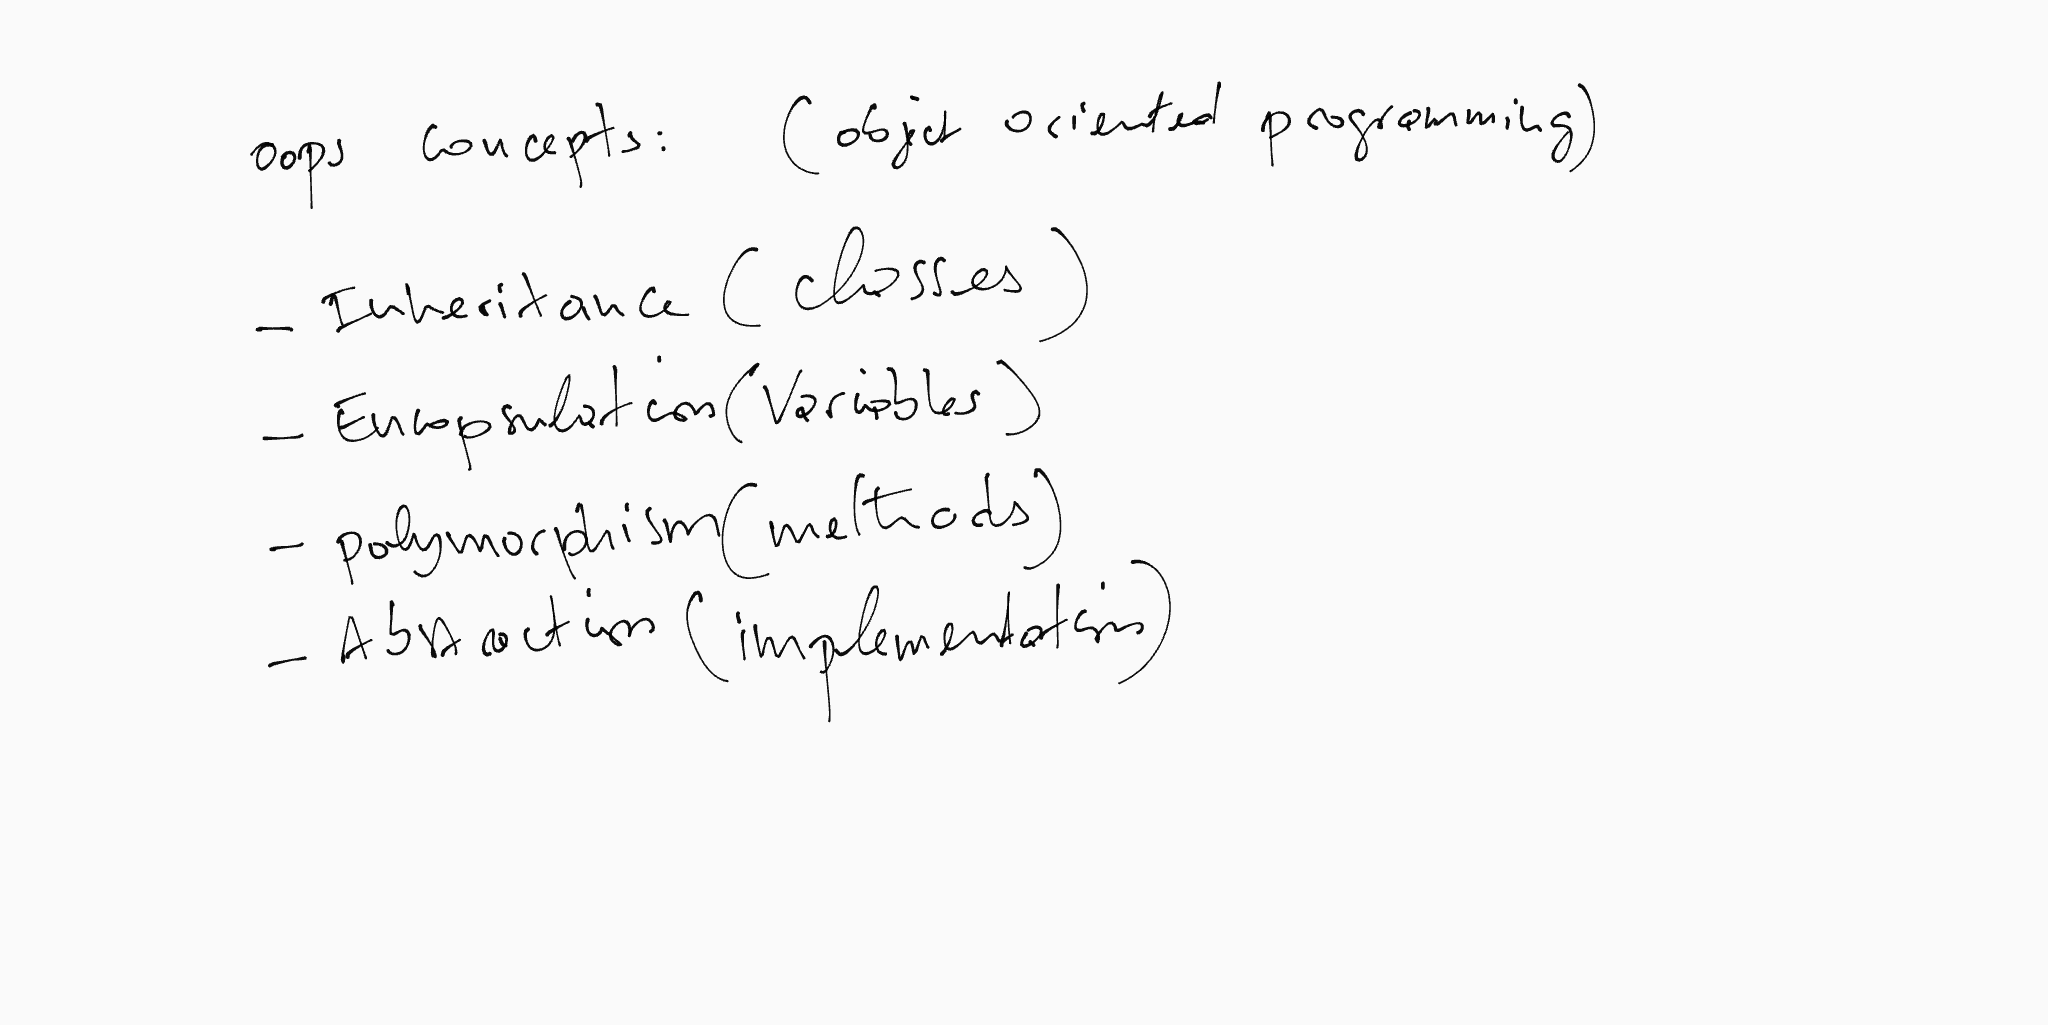 oops concepts: (object oriented programming)
- Inheritance (classes)
- Encapsulation (Variables)
- polymorphism (methods)
- Abstraction (implementation)